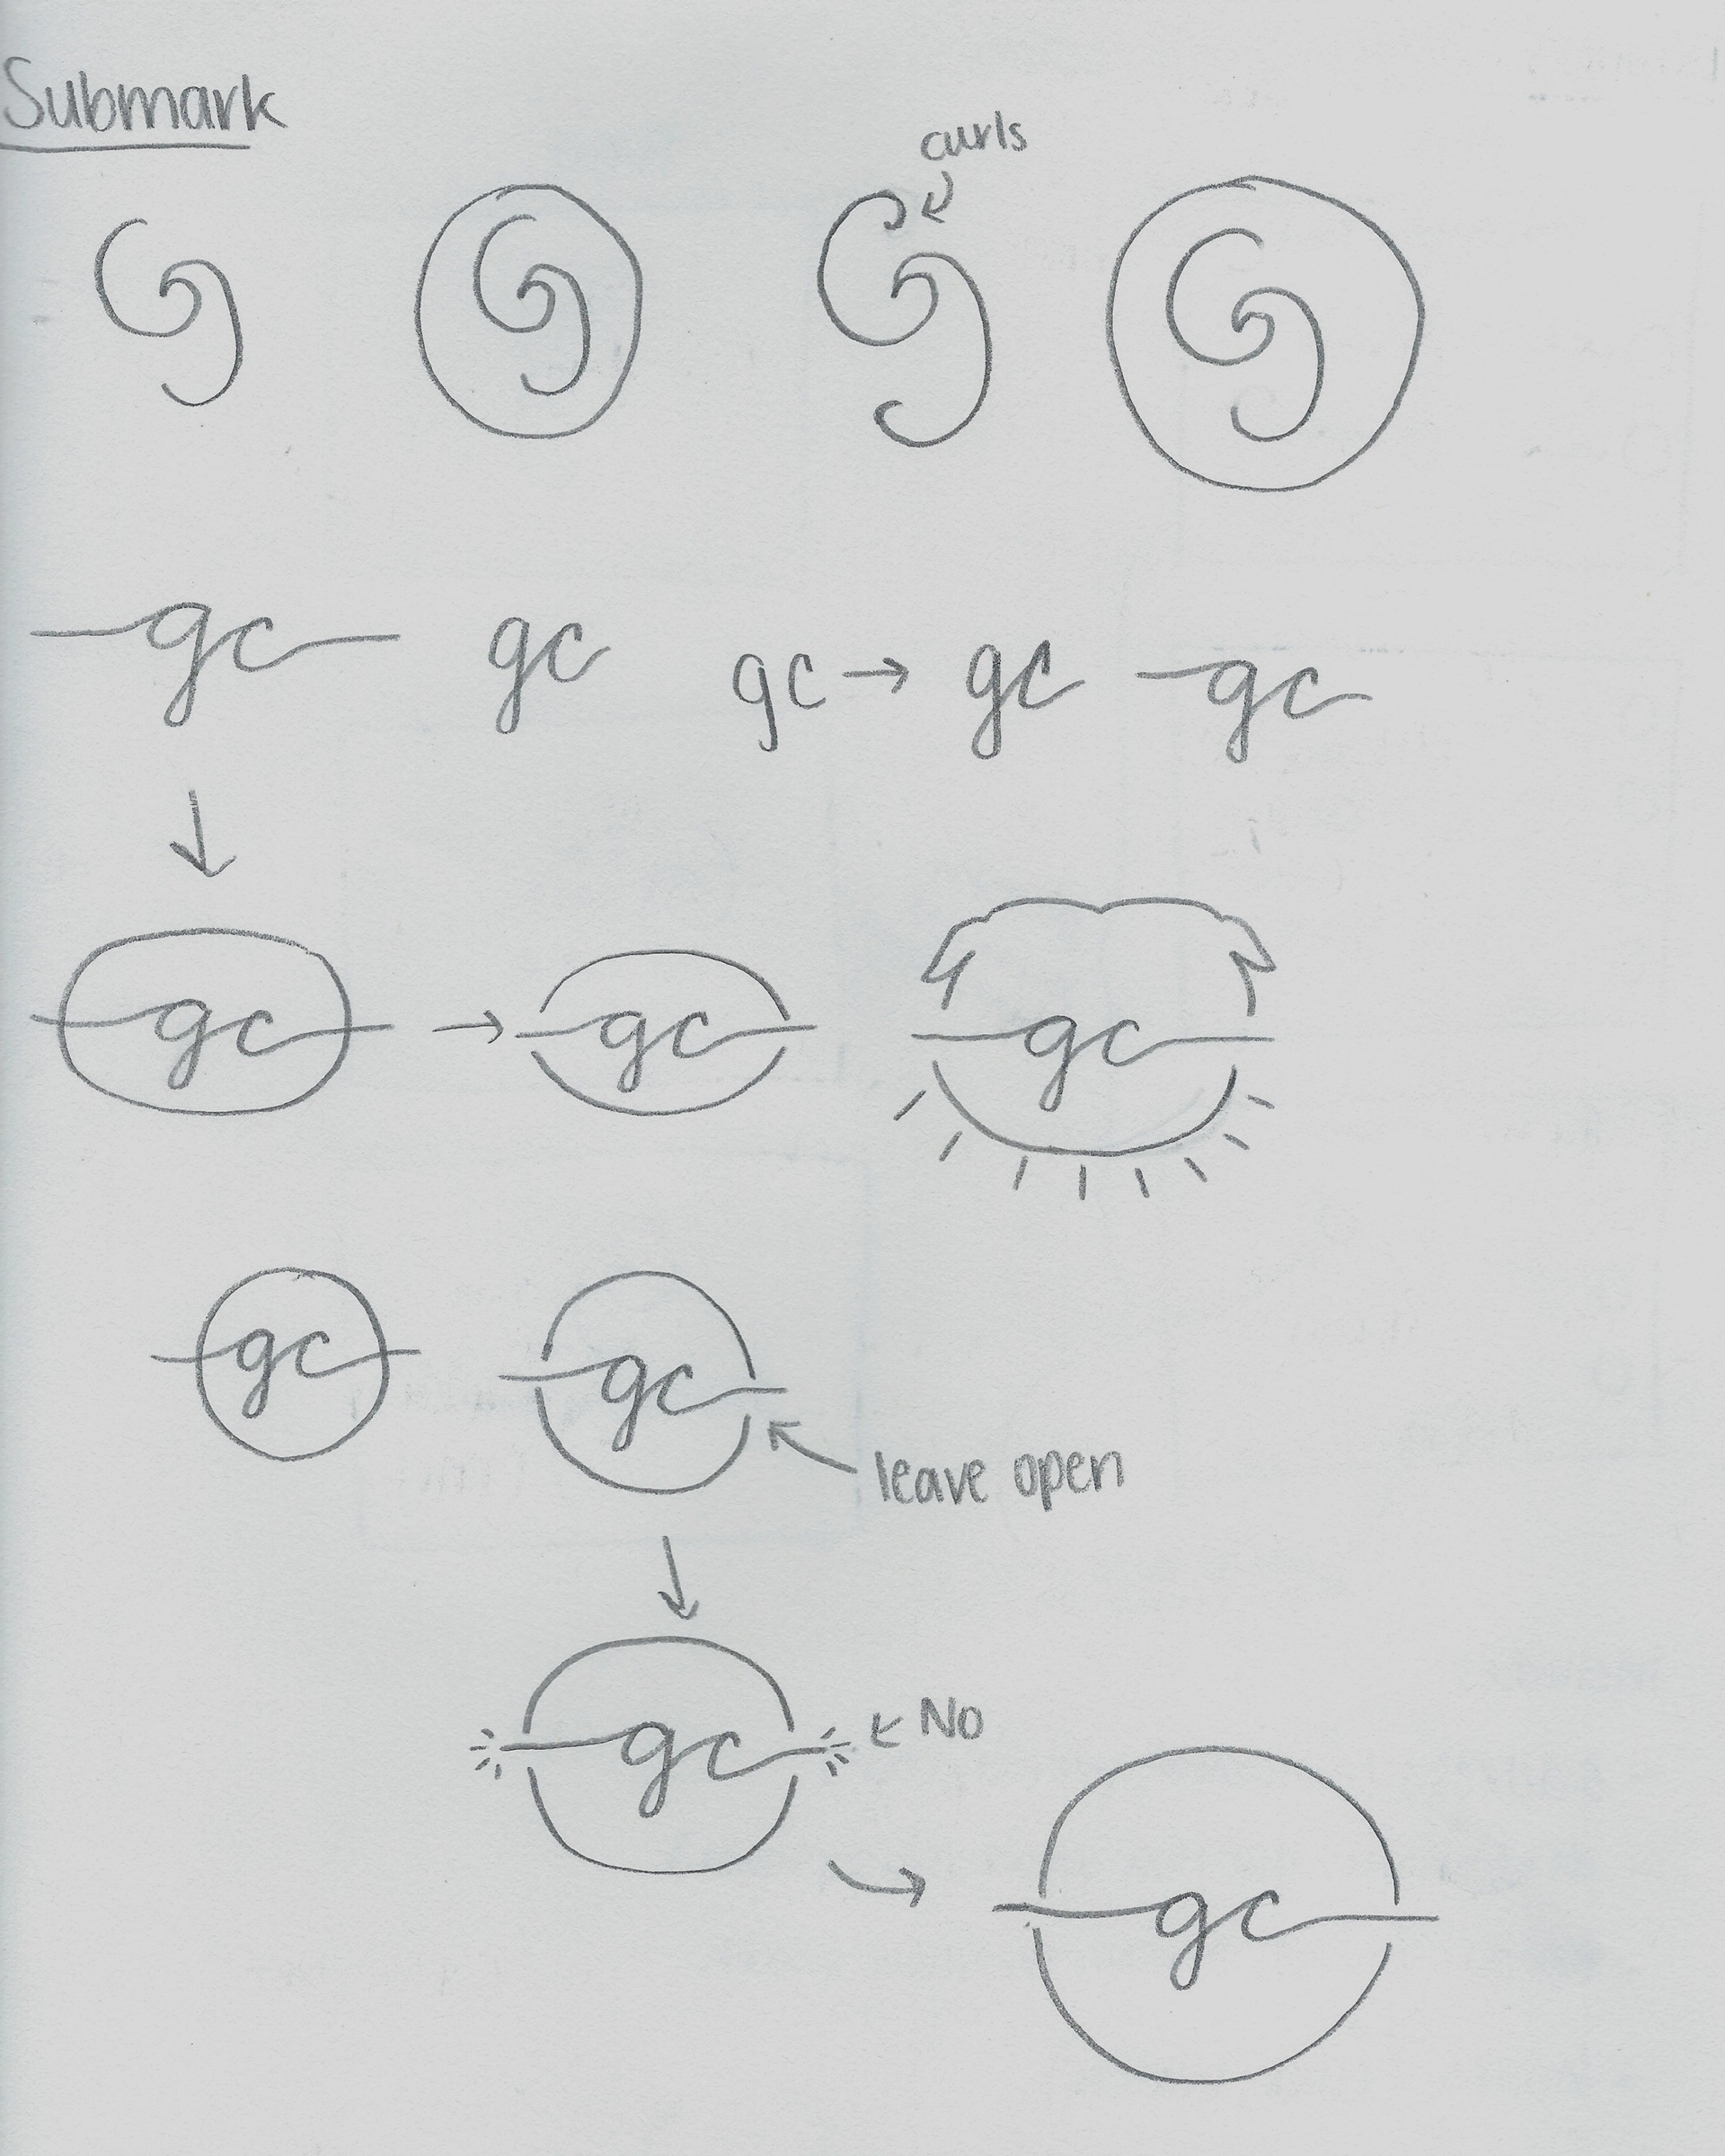 Submark
curls
gc gc gc → gc gc
gc → gc gc
gc gc
leave open
gc No
gc